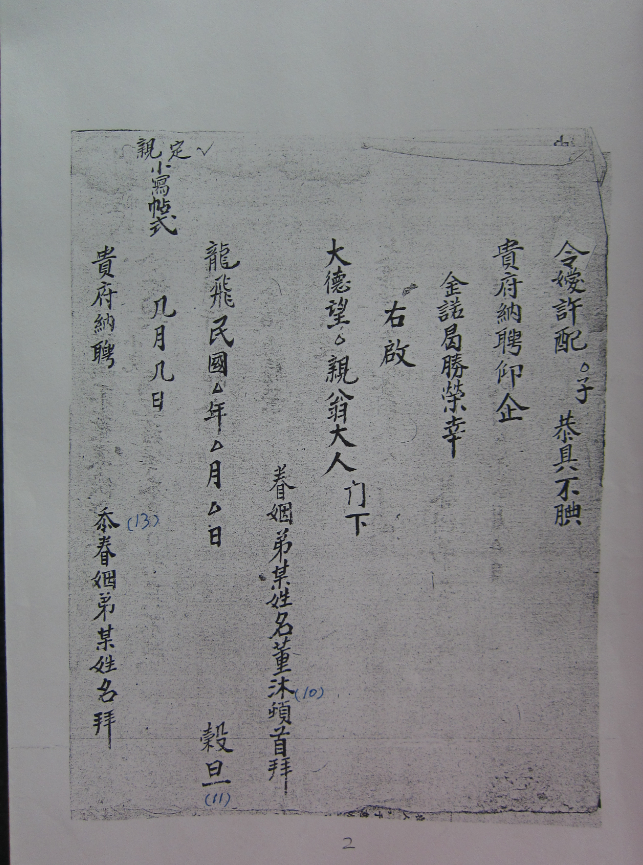 令嫒許配。子 恭具不腆
貴府納聘仰企
金諾曷勝榮幸
右啟
大德望。親翁大人 门下
眷姻弟某姓名董沐頓首拜
(10)
龍飛民國△年△月△日 穀旦
(11)
定親小寫帖式
几月几日
(13)
貴府納聘 忝眷姻弟某姓名拜
2